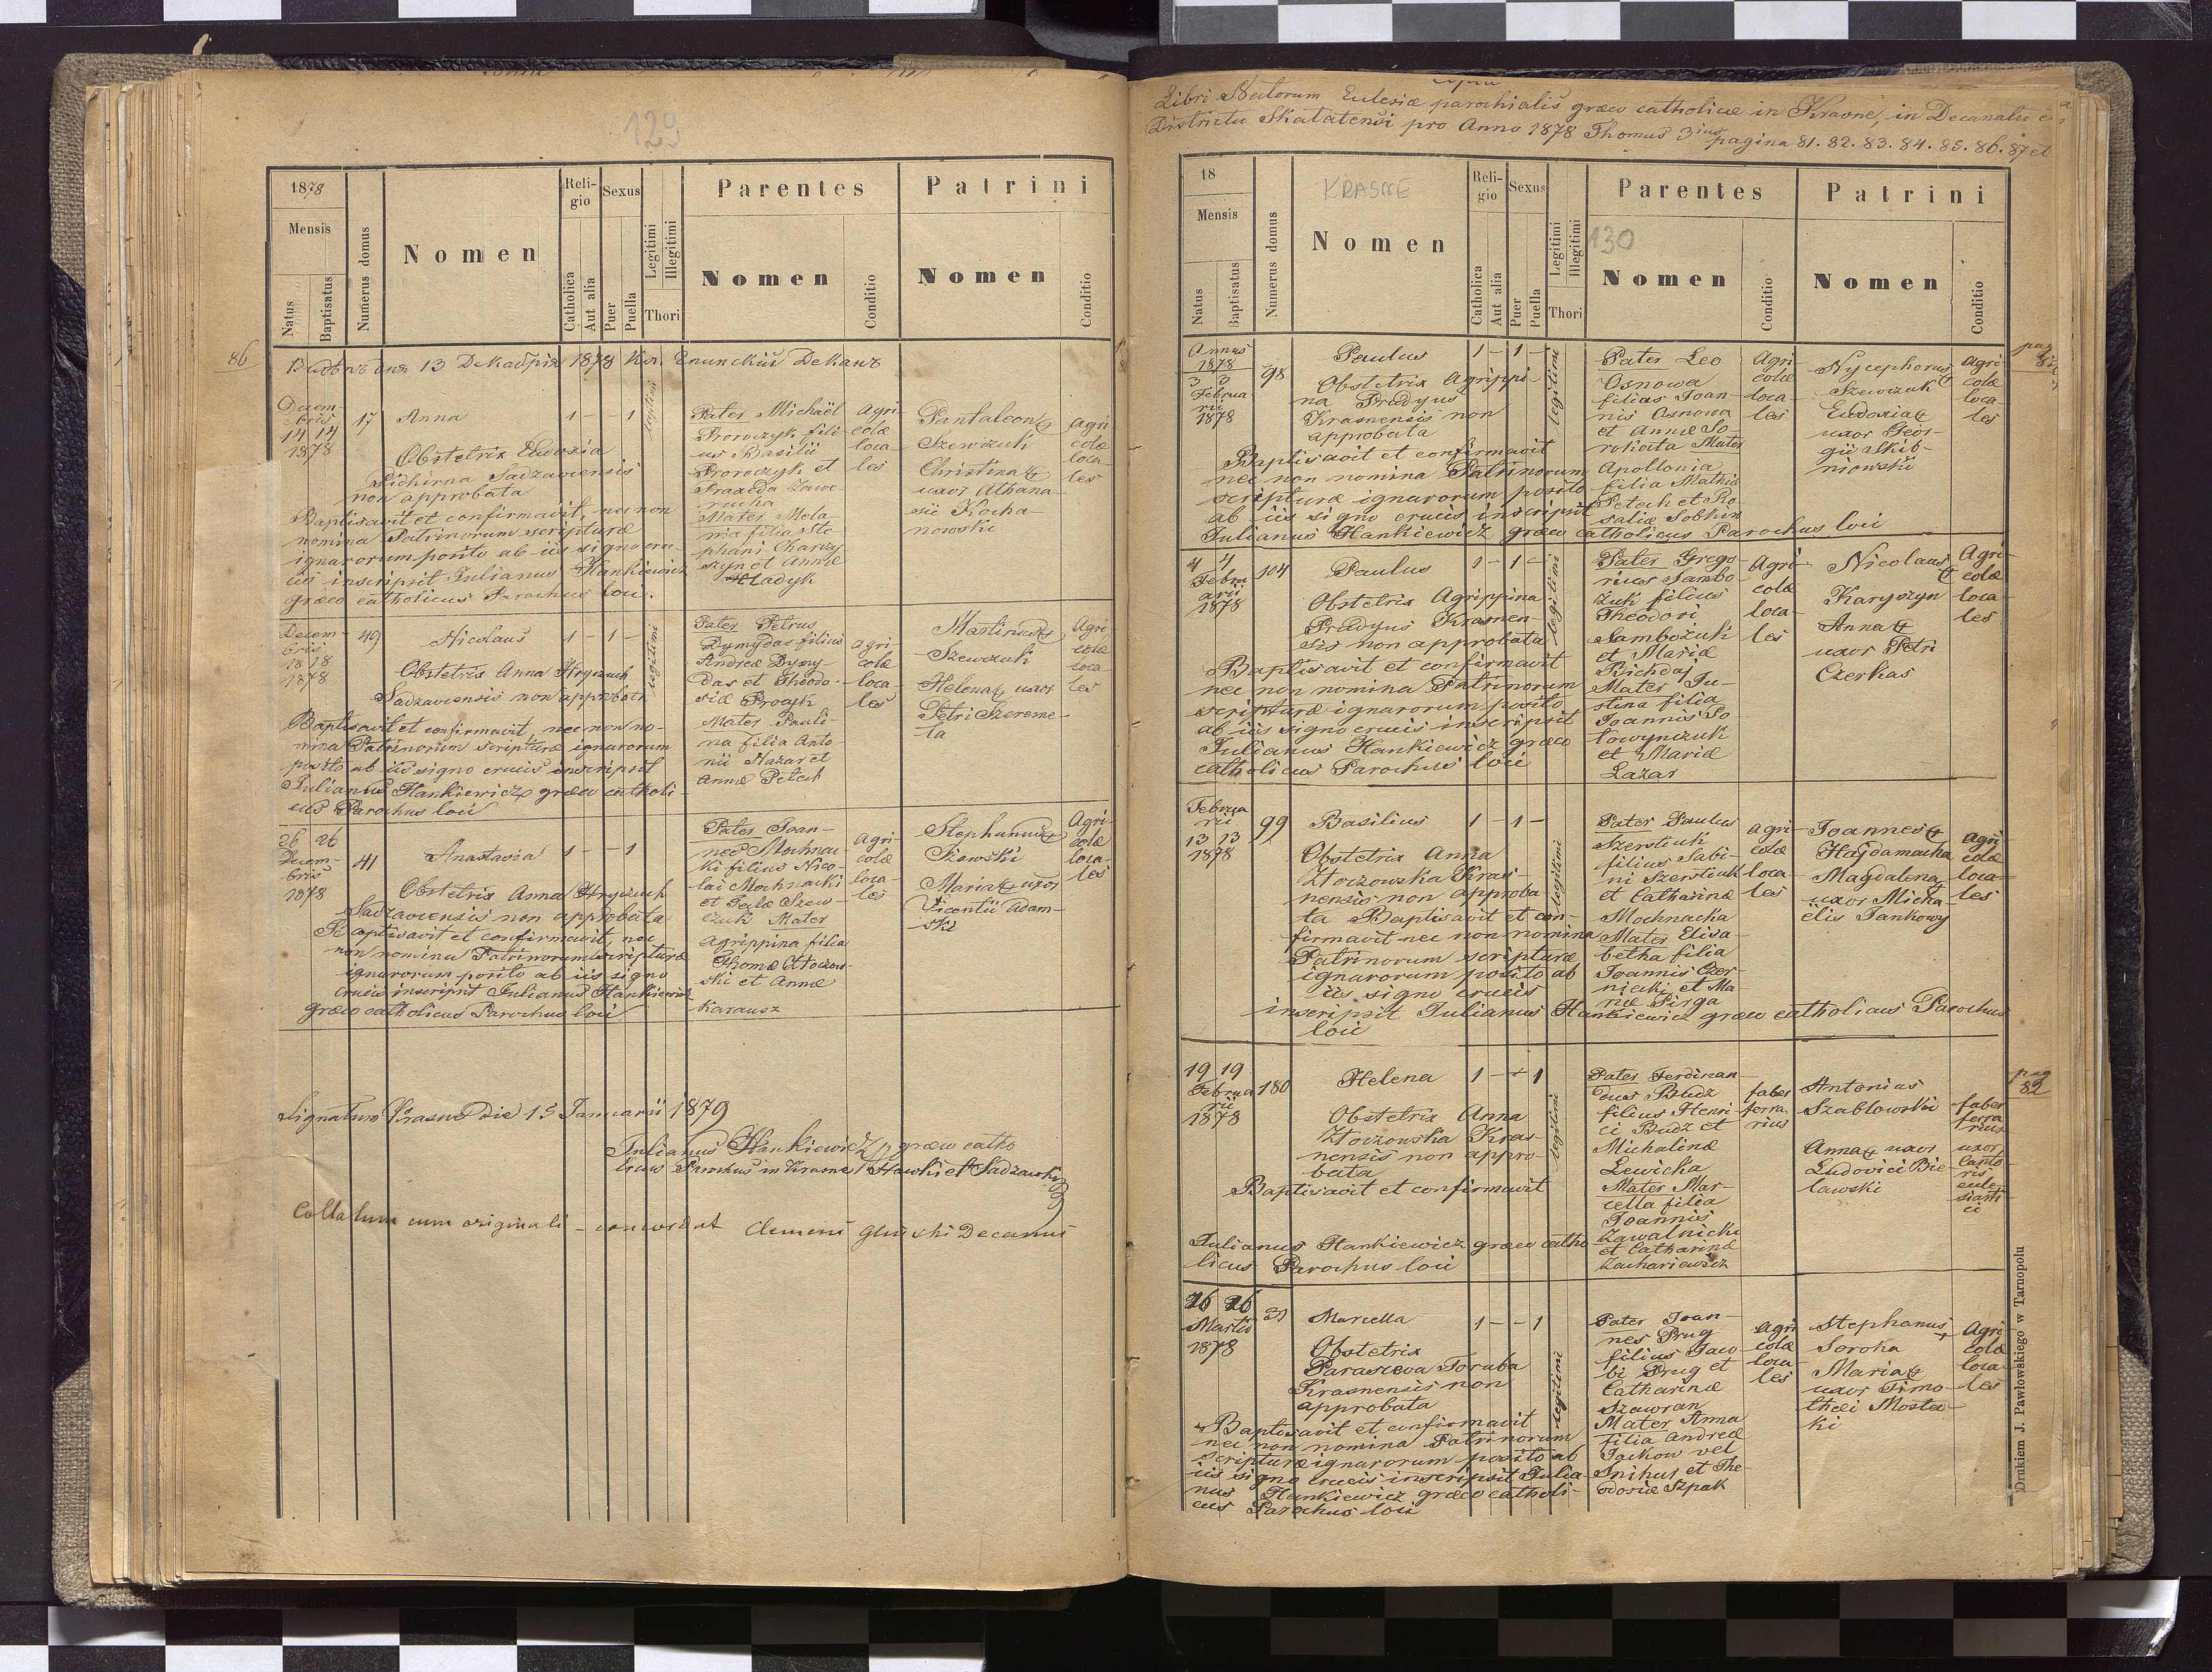 129
1878
Mensis
Natus
Baptisatus
Numerus domus
Nomen
Reli-
gio
Catholica
Aut alia
Sexus
Puer
Puella
Legitimi
Illegitimi
Thori
Parentes
Nomen
Conditio
Patrini
Nomen
Conditio
86
13 1878
Decem-
bris
14 14
1878
17
Anna
1 - - 1
legitimi
Obstetrix Eudoxia
Pidhirna Sadzaviensis
non approbata
Baptisavit et confirmavit, nec non
nomina Patrinorum scripturæ
ignarorum posito ab iis signo cru-
cis inscripsit Julianus Hankiewicz
græco catholicus Parochus loci.
Pater Michaël
Prorozyk fili-
us Basilii
Prorozyk et
Mater Mela-
nia filia Ste-
phani
szyn et Annæ
Hladyk
Agri-
colæ
loca-
les
Pantaleon
Szewczuk
Christina
uxor Athana-
sii Kocha-
nowski
Agri-
colæ
loca-
les
Decem-
bris
18 18
1878
49
Nicolaus
1 - 1 -
legitimi
Obstetrix Anna Hryczuch
Sadzaviensis non approbata
Baptisavit et confirmavit, nec non no-
mina Patrinorum scripturæ ignarorum
posito ab iis signo crucis inscripsit
Julianus Hankiewicz græco catholi-
cus Parochus loci
Pater Petrus
Dymydas filius
Andreæ Dymy-
das et Theodo-
siæ
Mater Pauli-
na filia Anto-
nii Nazar et
Annæ Petech
Agri
colæ
loca-
les
Szewczuk
Helena uxor
Petri Szereme-
ta
Agri
colæ
loca
les
26 26
Decem-
bris
1878
41
Anastasia
1 - - 1
Obstetrix Anna Hryczuch
Sadzaviensis non approbata
Baptisavit et confirmavit, nec
non nomina Patrinorum scripturæ
ignarorum posito ab iis signo
crucis inscripsit Julianus Hankiewicz
græco catholicus Parochus loci
Pater Joan-
nes Mochnac-
ki filius Nico-
lai Mochnacki
et Szew-
czuk Mater
Agrippina filia
Thomæ
ski et Annæ
Karausz
Agri-
colæ
loca-
les
Stephanus
Mariæ uxor
Vicentii Adam-
ski
Agri
colæ
loca-
les
Signatum Krasne Die 15 Januarii 1879
Julianus Hankiewicz græco catho
licus Parochus in Krasne
Collatum cum originali - concordat Clemens Decanus
Libri Natorum Ecclesiæ parochialis græco catholicæ in Krasne, in Decanatu et
Districtu Skalatensi pro Anno 1878 Thomus 3ius pagina 81. 82. 83. 84. 85. 86. 87 et
18
Mensis
Natus
Baptisatus
Numerus domus
KRASNE
Nomen
Reli-
gio
Catholica
Aut alia
Sexus
Puer
Puella
Legitimi
Illegitimi
Thori
Parentes
130
Nomen
Conditio
Patrini
Nomen
Conditio
Annus
1878
3 3
Februa
rii
1878
98
Paulus
1 - 1 -
legitimi
Obstetrix Agrippi-
na Predyus
Krasnensis non
approbata
Baptisavit et confirmavit
nec non nomina Patrinorum
scripturæ ignarorum posito
ab iis signo crucis inscripsit
Julianus Hankiewicz græco catholicus Parochus loci
Pater Leo
Osnowa
filius Joan-
nis Osnowa
et Annæ So-
rokata Mater
Apollonia
filia Mathiæ
Petech et Ro-
saliæ Sobkiw
Agri-
colæ
loca-
les
Nycephorus
Szewczuk
Eudoxia
uxor Geor-
gii Skib-
niowski
Agri
colæ
loca-
les
4 4
Febru
arii
1878
104
Paulus
1 - 1 -
legitimi
Obstetrix Agrippina
Predyus Krasnen-
sis non approbata
Baptisavit et confirmavit
nec non nomina Patrinorum
scripturæ ignarorum posito
ab iis signo crucis inscripsit
Julianus Hankiewicz græco
catholicus Parochus loci
Pater Grego
rius Sambo-
zuk filius
Theodori
Sambozuk
et Mariæ
Bichdaj
Mater Ju-
stina filia
Joannis So-
lowynczuk
et Mariæ
Lazar
Agri-
colæ
loca-
les
Nicolaus
Karyszyn
Anna
uxor Petri
Czerkas
Agri-
colæ
loca-
les
Februa
rii
13 13
1878
99
Basilius
1 - 1 -
legitimi
Obstetrix Anna
Złoczowska Kras-
nensis non approba
ta Baptisavit et con-
firmavit nec non nomina
Patrinorum scripturæ
ignarorum posito ab
iis signo crucis
inscripsit Julianus Hankiewicz græco catholicus Parochus
loci
Pater Paulus
Szerstiuk
filius Sabi-
ni Szerstiuk
et Catharinæ
Mochnacka
Mater Elisa-
betha filia
Joannis Czer-
niecki et Ma
riæ Pirga
Agri-
colæ
loca-
les
Joannes
Hajdamacha
Magdalena
uxor Micha-
ëlis Jankowy
Agri
colæ
loca-
les
pag
82
19 19
Februa
rii
1878
180
Helena
1 - - 1
legitimi
Obstetrix Anna
Złoczowska Kras-
nensis non appro-
bata
Baptisavit et confirmavit
Julianus Hankiewicz græco catho
licus Parochus loci
Pater Ferdinan-
dus Budz
filius Henri-
ci Budz et
Michalinæ
Lewicka
Mater Mar-
cella filia
Joannis
Zawalnicki
et Catharinæ
Zachariewicz
faber
ferra
rius
Antonius
Szablowski
Anna uxor
Ludovici Bie-
lawski
faber
ferra
rius
uxor
Canto-
ris
eccle-
siasti
ci
26 26
Martii
1878
31
Marcella
1 - - 1
legitimi
Obstetrix
Parasceva Toruba
Krasnensis non
approbata
Baptisavit et confirmavit
nec non nomina Patrinorum
scripturæ ignarorum posito ab
iis signo crucis inscripsit Julia-
nus Hankiewicz græco catholi-
cus Parochus loci
Pater Joan-
nes Prug
filius Jaco-
bi Prug et
Catharinæ
Szawran
Mater Anna
filia Andreæ
Jackow vel
Snihur et The-
odosiæ Szpak
Agri
colæ
loca-
les
Stephanus
Soroka
Maria
uxor Timo-
thei Mostec-
ki
Agri-
colæ
loca-
les
Drukiem J. Pawłowskiego w Tarnopolu